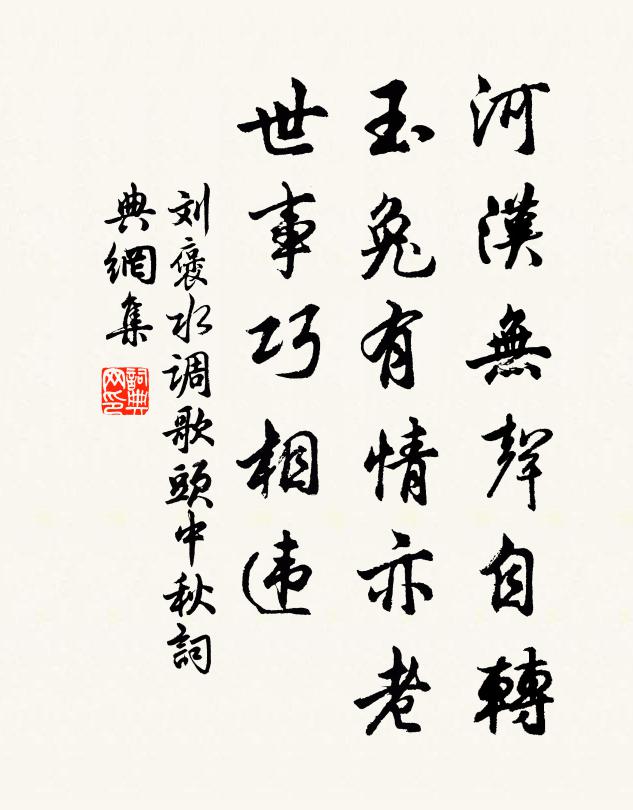 河漢無聲自轉
玉兔有情亦老
世事巧相违
刘褒水调歌頭中秋詞
典網集
詞典网印